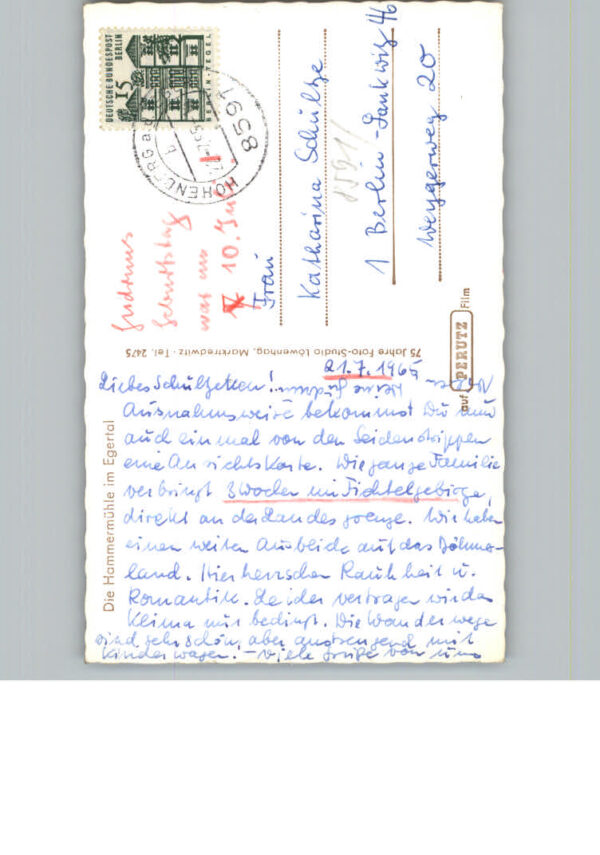 Die Hammermühle im Egertal
21.7.1965
Liebes Schultzeken!
Ausnahmsweise bekommst Du nun
auch einmal von den Seidenstrippen
eine Ansichtskarte. Die ganze Familie
verbringt 3 Wochen im Fichtelgebirge,
direkt an der Landesgrenze. Wir haben
einen weiten Ausblick auf das Böhmer-
land. Hier herrschen Rauhheit u.
Romantik. Leider vertragen wir das
Klima nur bedingt. Die Wanderwege
sind sehr schön, aber anstrengend mit
Kinderwagen! – Viele Grüße von uns
75 Jahre Foto-Studio Löwenhag, Marktredwitz · Tel. 2475
auf PERUTZ Film
Gudruns
Geburtstag
war am
10. Juli
DEUTSCHE BUNDESPOST
BERLIN
15
BERLIN-TEGEL
8591
HOHENBERG a.d.
b
Frau
Katharina Schultze
8591
1 Berlin-Lankwitz 46
Weygerweg 20